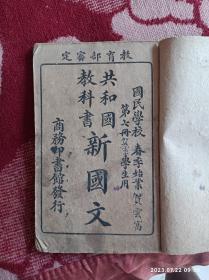 教育部審定
國民學校 春季始業
第七冊 學生用
共和國
教科書
新國文
商務印書館發行
2023.07.22 09:13